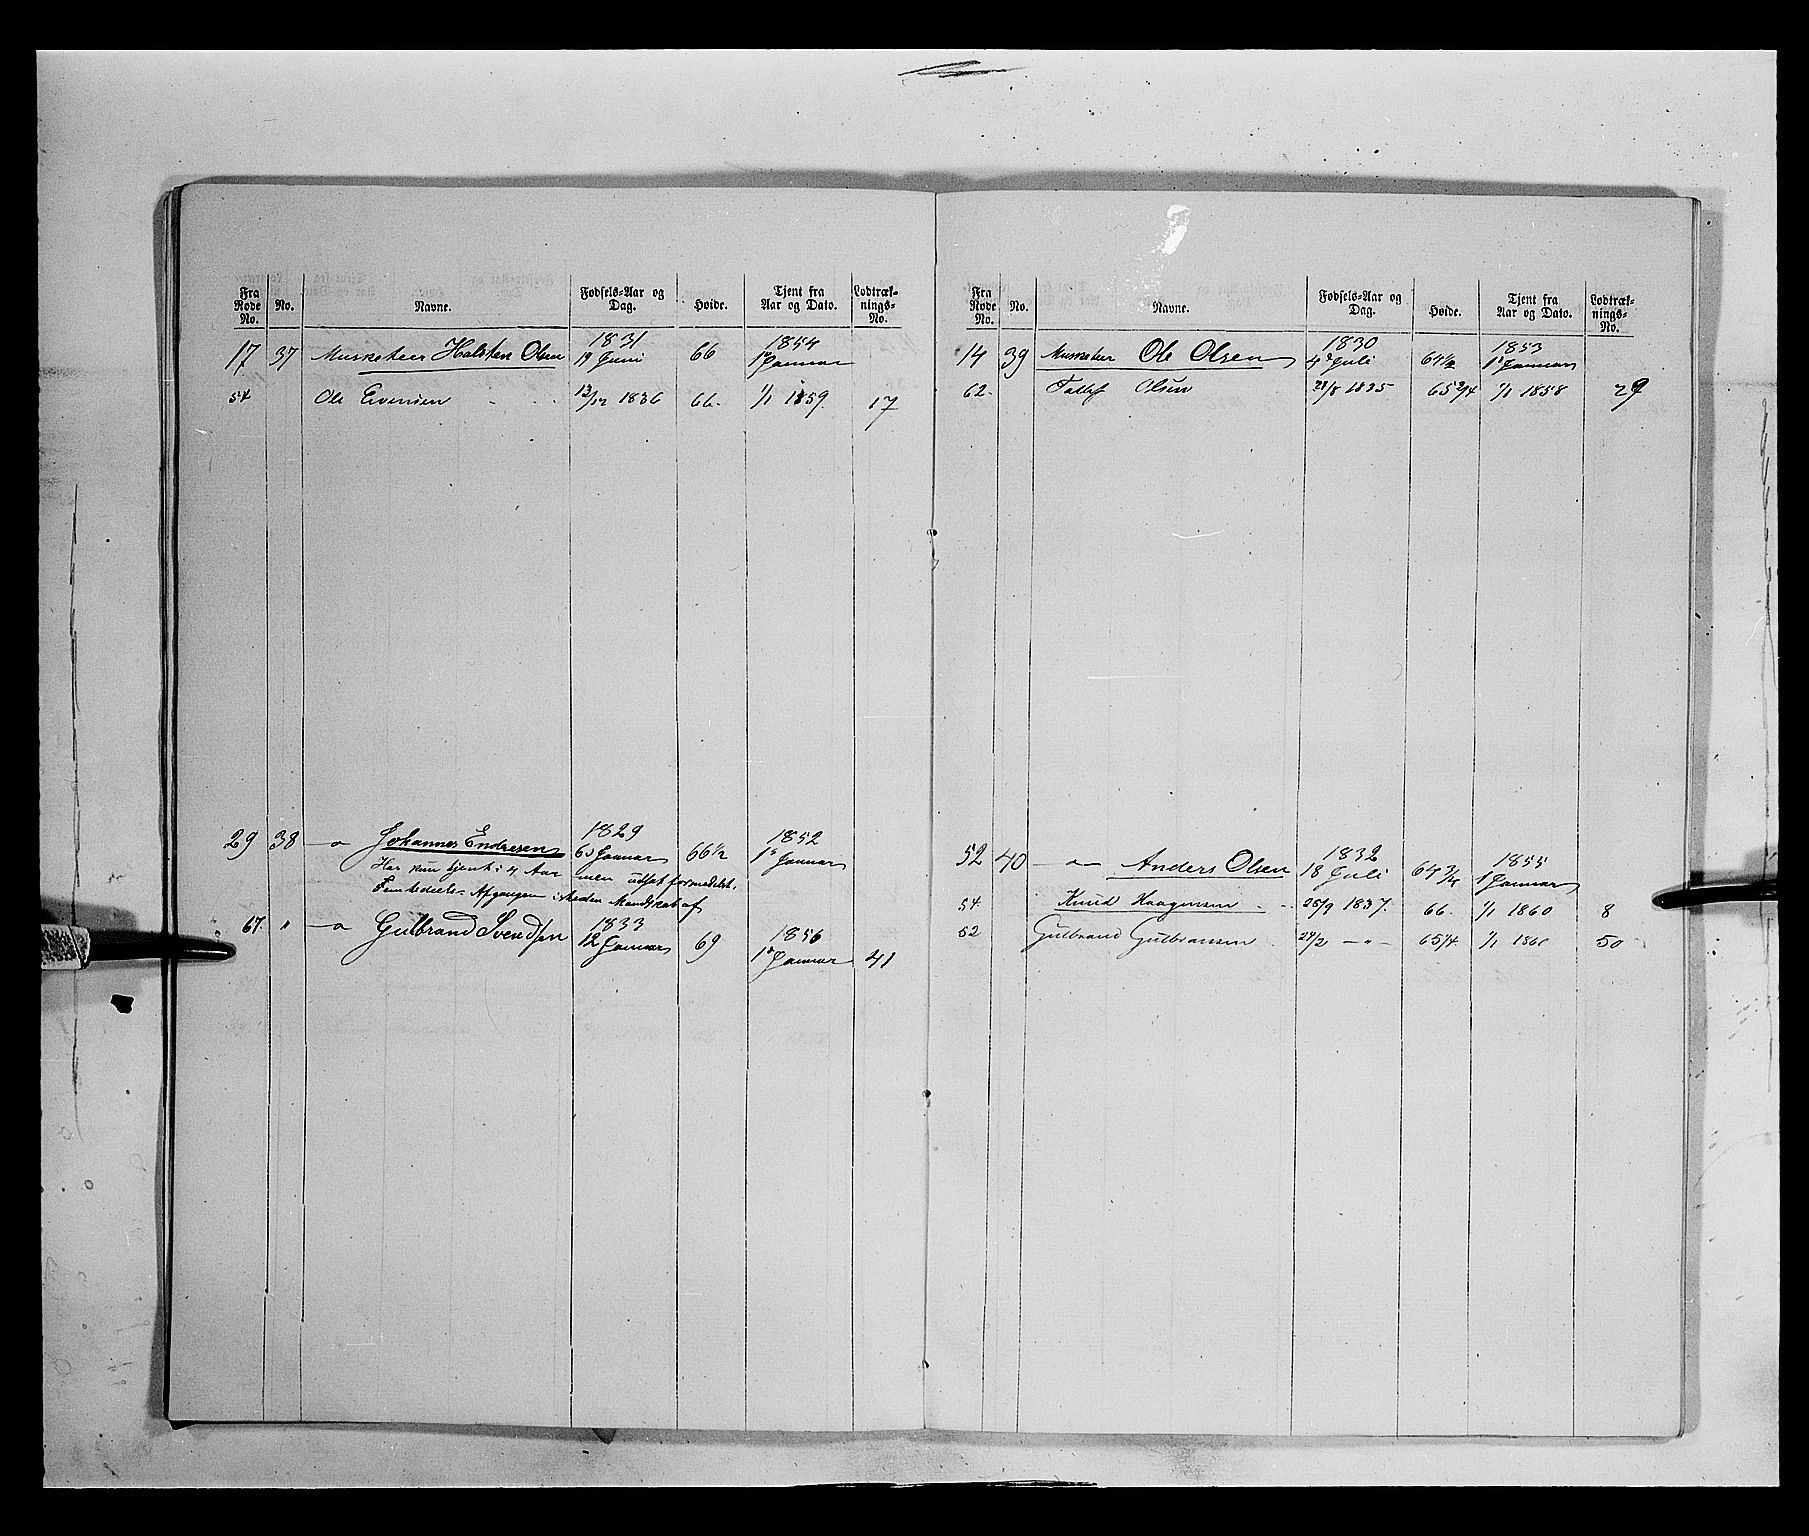 Fra Rode No. No. Navne. Fødsels-Aar og Dag. Høide. Tjent fra Aar og Dato. Lodtræk-nings-No.
17 37 Musketeer Halsten Olsen 1831 19 Juni 66 1854 1 Januar
54 Ole Evensen 13/12 1836 66. 1/1 1859. 17
29 38 —"— Johannes Endresen 1829 6 Januar 66 1/2 1852 1 Januar
Har kun tjent i 4 Aar men udsat formedelst
Femtedeels-Afgangen Mandskab af
67. " —"— Gulbrand Svendsen 1833 12 Januar 69 1856 1 Januar 41
Fra Rode No. No. Navne. Fødsels-Aar og Dag. Høide. Tjent fra Aar og Dato. Lodtræk-nings-No.
14 39 Musketeer Ole Olsen 1830 4 Juli 64 1/2 1853 1 Januar
62. Tollef Olsen 28/8 1835. 65 3/4 1/1 1858 29
52 40 —"— Anders Olsen 1832 18 Juli 64 3/4 1855 1 Januar
54. Knud Haagensen 25/9 1837. 66. 1/1 1860 8
52 Gulbrand Gulbransen 24/2 —"— 65 1/4. 1/1 1860 50